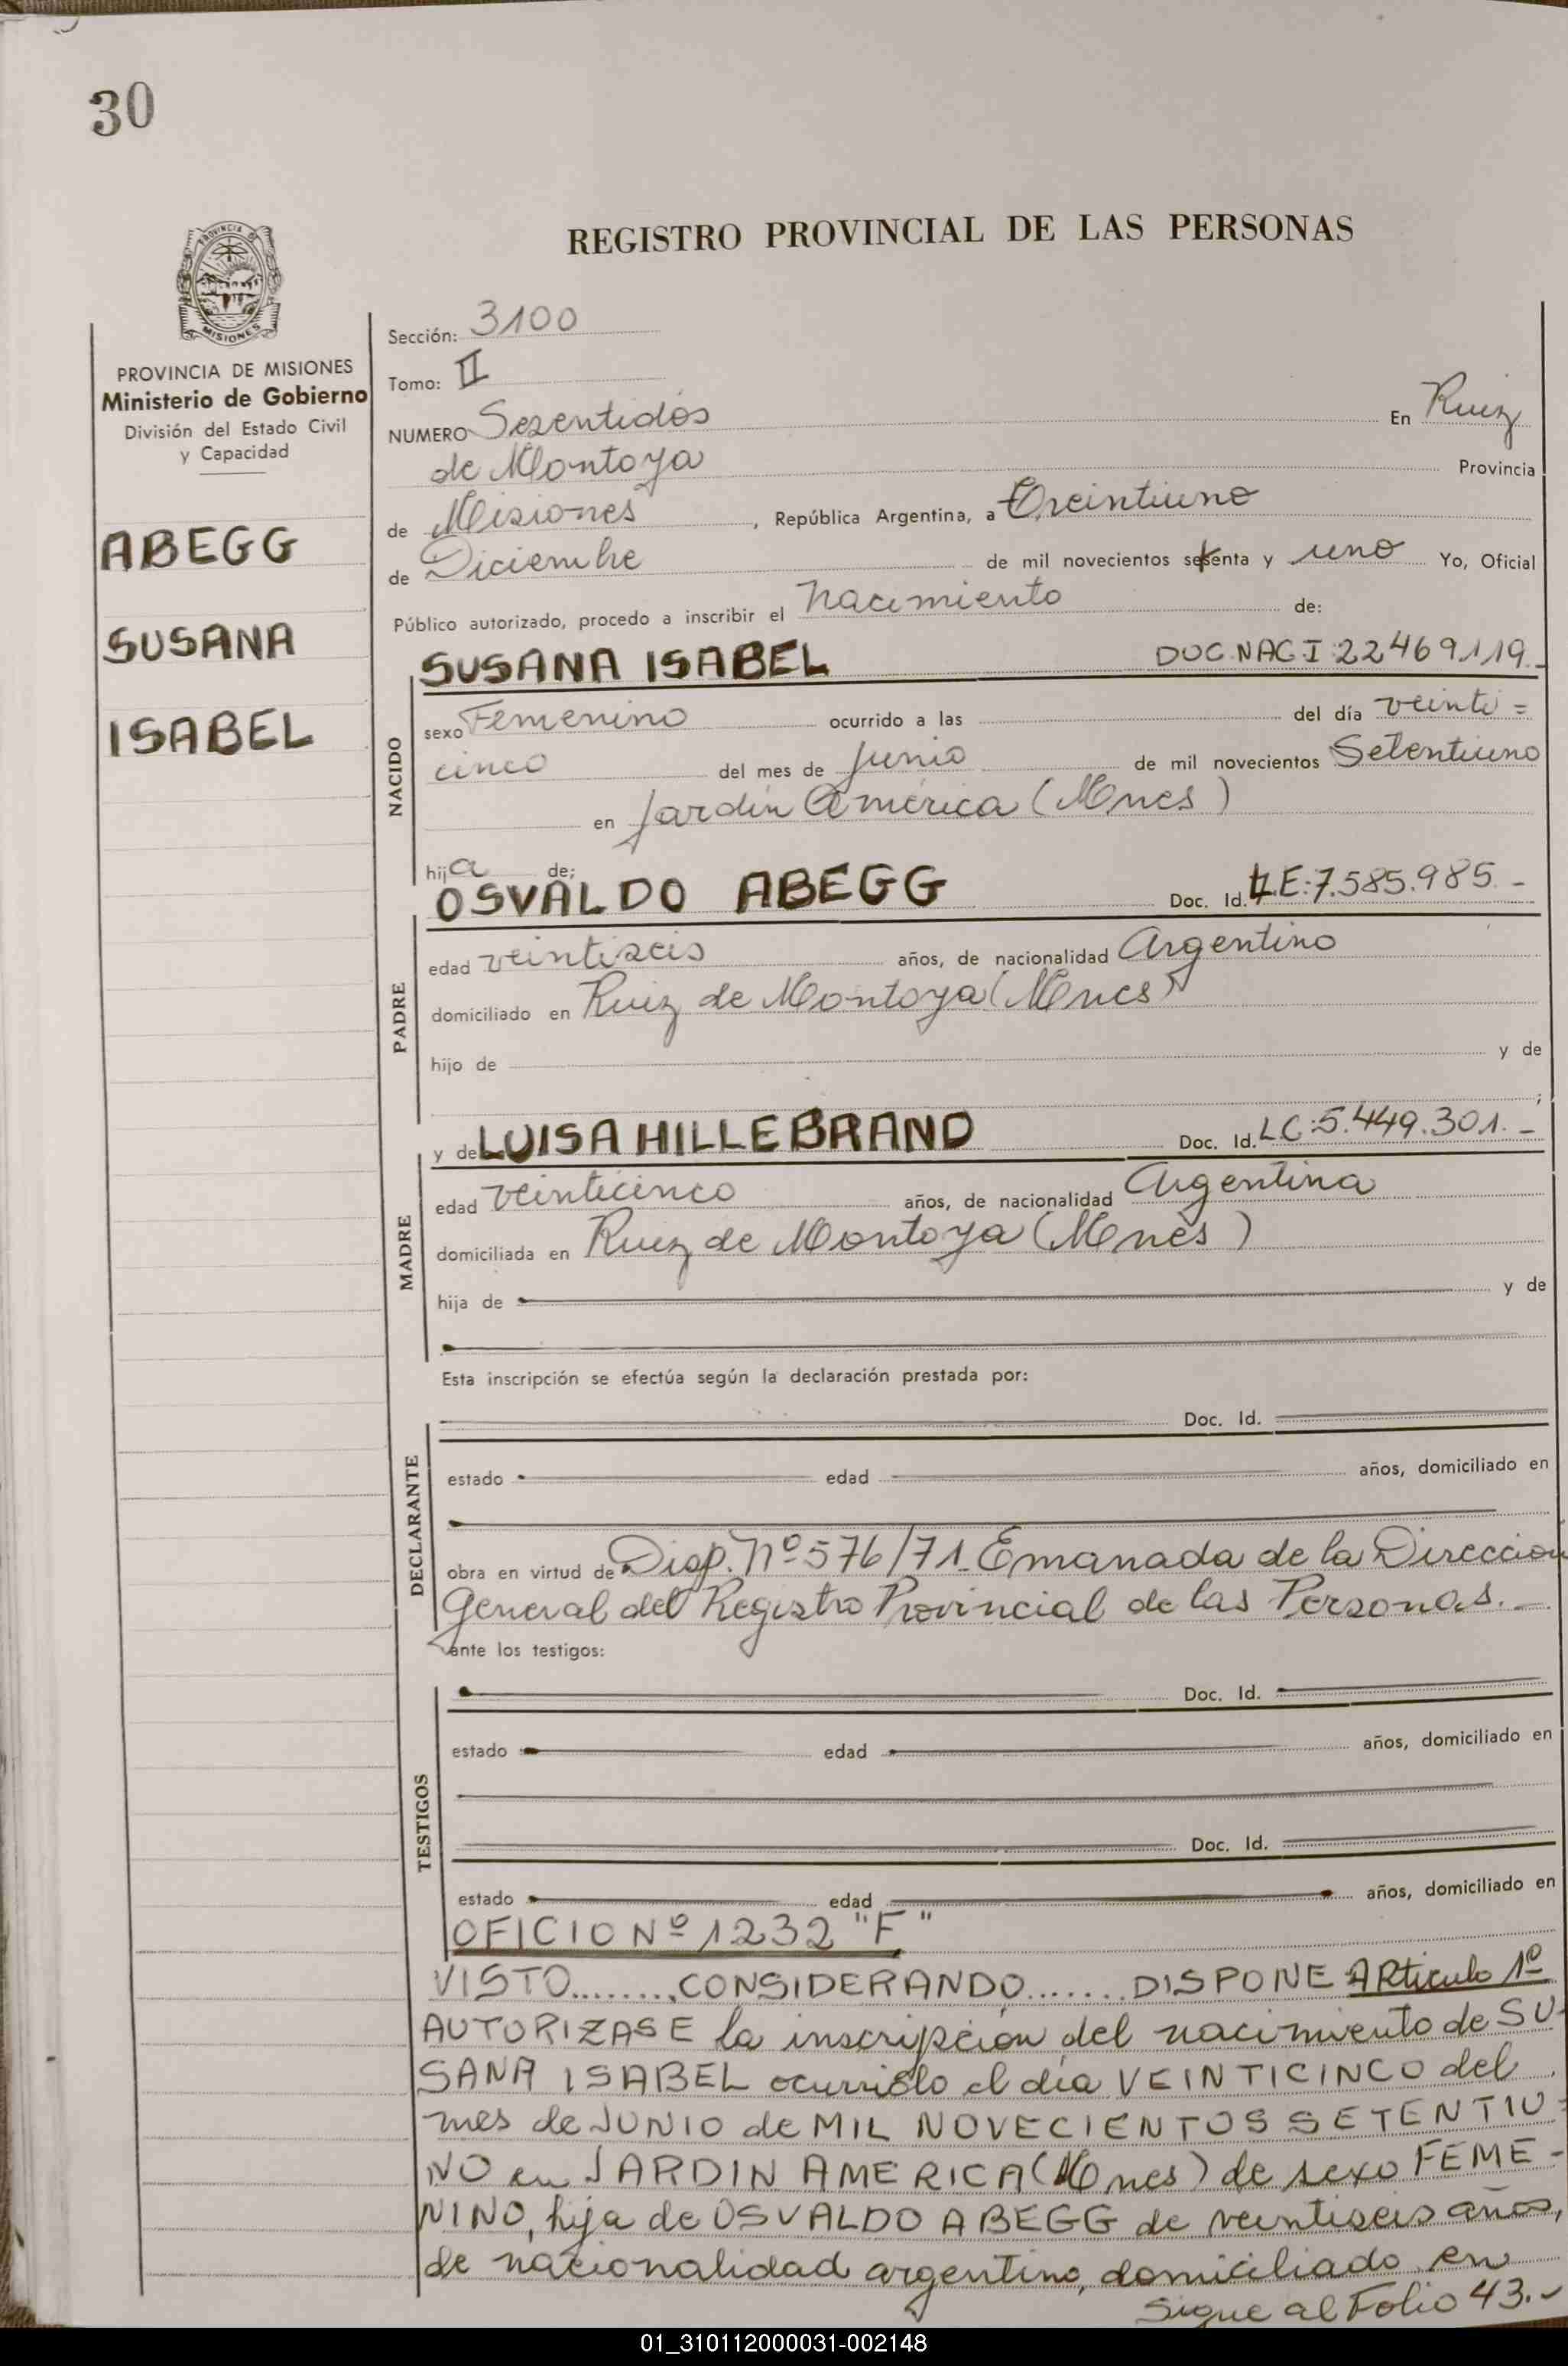 30
REGISTRO PROVINCIAL DE LAS PERSONAS
PROVINCIA DE MISIONES
Ministerio de Gobierno
División del Estado Civil
y Capacidad
ABEGG
SUSANA
ISABEL
Sección: 3100
Tomo: II
NUMERO Sesentidós En Ruiz
de Montoya Provincia
de Misiones, República Argentina, a Treintiuno
de Diciembre de mil novecientos setenta y uno Yo, Oficial
Público autorizado, procedo a inscribir el nacimiento de:
NACIDO
SUSANA ISABEL DOC.NAC.I 22469119.-
sexo Femenino ocurrido a las del día veinti=
cinco del mes de Junio de mil novecientos Setentiuno
en Jardín América (Mnes)
hija de:
PADRE
OSVALDO ABEGG Doc. Id. LE:7.585.985.-
edad veintiseis años, de nacionalidad Argentino
domiciliado en Ruiz de Montoya (Mnes)
hijo de y de
;
MADRE
y de LUISA HILLEBRAND Doc. Id. LC:5.449.301.-
edad veinticinco años, de nacionalidad Argentina
domiciliada en Ruiz de Montoya (Mnes)
hija de y de
Esta inscripción se efectúa según la declaración prestada por:
DECLARANTE
Doc. Id.
estado edad años, domiciliado en
obra en virtud de Disp. Nº 576/71. Emanada de la Dirección
General del Registro Provincial de las Personas.-
ante los testigos:
TESTIGOS
Doc. Id.
estado edad años, domiciliado en
Doc. Id.
estado edad años, domiciliado en
OFICIO Nº 1232 "F"
VISTO........CONSIDERANDO.......DISPONE ARticulo 1º
AUTORIZASE la inscripción del nacimiento de SU-
SANA ISABEL ocurrido el día VEINTICINCO del
mes de JUNIO de MIL NOVECIENTOS SETENTIU=
NO en JARDIN AMERICA (Mnes) de sexo FEME-
NINO, hija de OSVALDO ABEGG de veintiseis años,
de nacionalidad argentino, domiciliado en
Sigue al Folio 43.-
01_310112000031-002148